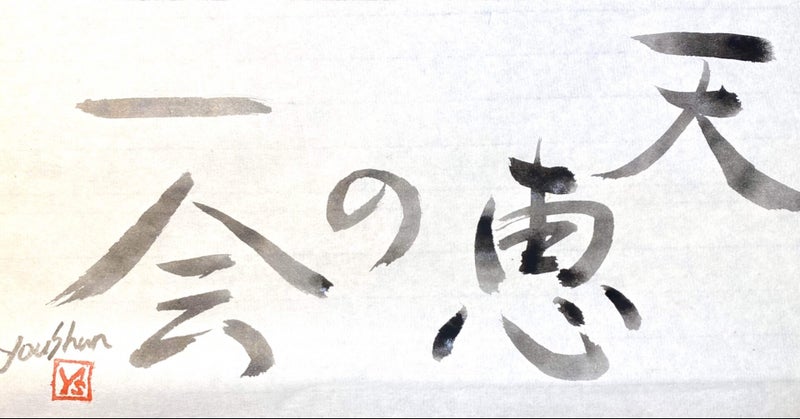 天恵の一会
Youshun
YS